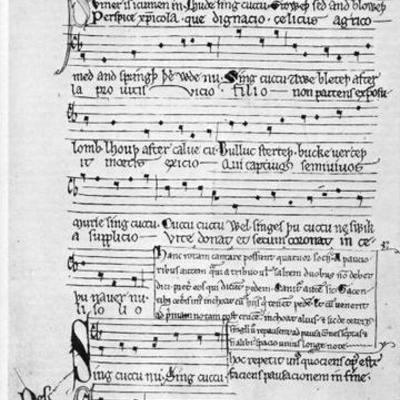 umer is icumen in. Lhude sing cuccu. Groweþ sed and bloweþ
Perspice xp̄icola. que dignacio. celicus agrico
med and springþ þe wde nu. Sing cuccu. Awe bleteþ after
la pro uitis vicio filio non parcens exposu
lomb. lhouþ after calue cu. Bulluc sterteþ. bucke uerteþ
it mortis exicio Qui captiuos semiuiuos
murie sing cuccu. Cuccu cuccu Wel singes þu cuccu ne swik
a supplicio Vite donat et secum coronat in ce
þu nauer nu.
li solio
Hanc rotam cantare possunt quatuor socii. A paucio
ribus autem quam a tribus uel saltem duobus non debet
dici preter eos qui dicunt pedem. Canitur autem sic. Tacen
tibus ceteris unus inchoat cum hiis qui tenent pedem. Et cum uenerit
ad primam notam post crucem. inchoat alius. et sic de ceteris
singuli uero repausent ad pausaciones scriptas et
non alibi spacio unius longe note.
hoc repetit unus quociens opus est
faciens pausacionem in fine.
Sing cuccu nu. Sing cuccu.
Pes